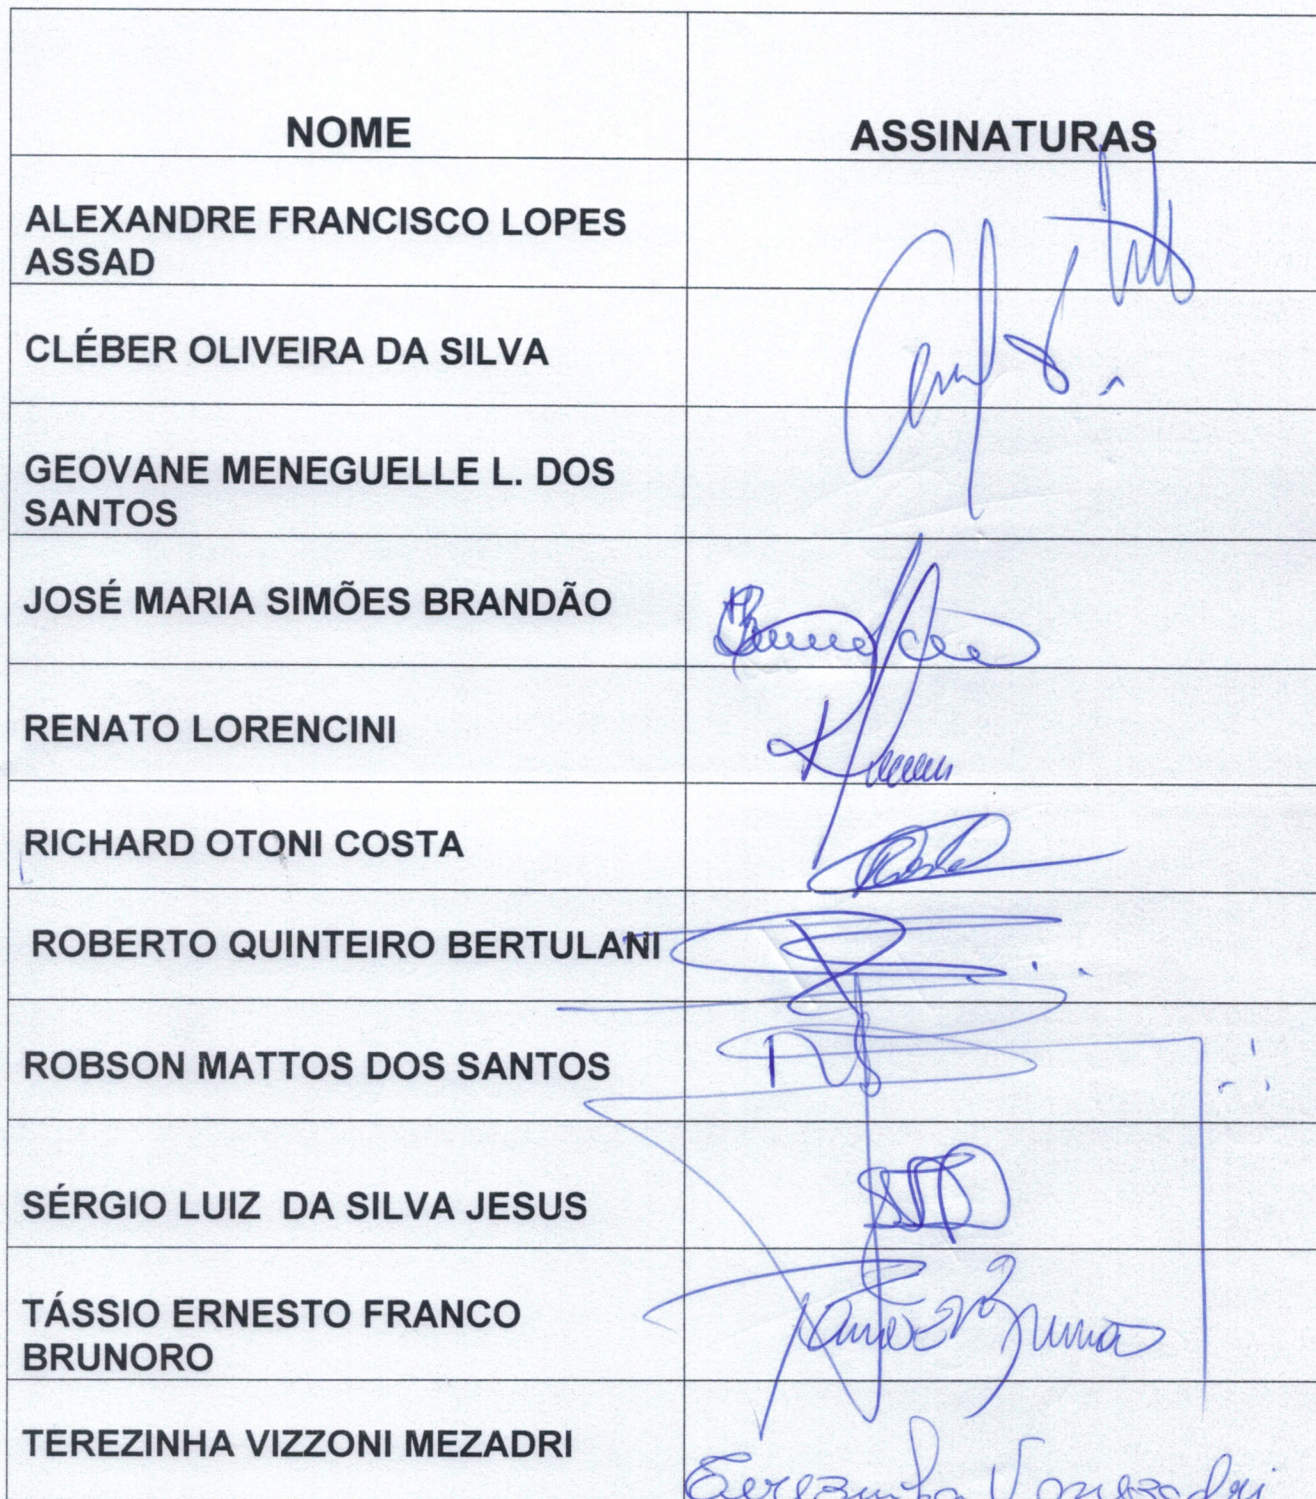 NOME
ASSINATURAS
ALEXANDRE FRANCISCO LOPES
ASSAD
CLÉBER OLIVEIRA DA SILVA
GEOVANE MENEGUELLE L. DOS
SANTOS
JOSÉ MARIA SIMÕES BRANDÃO
RENATO LORENCINI
RICHARD OTONI COSTA
ROBERTO QUINTEIRO BERTULANI
ROBSON MATTOS DOS SANTOS
SÉRGIO LUIZ  DA SILVA JESUS
TÁSSIO ERNESTO FRANCO
BRUNORO
TEREZINHA VIZZONI MEZADRI
Terezinha V mezadri